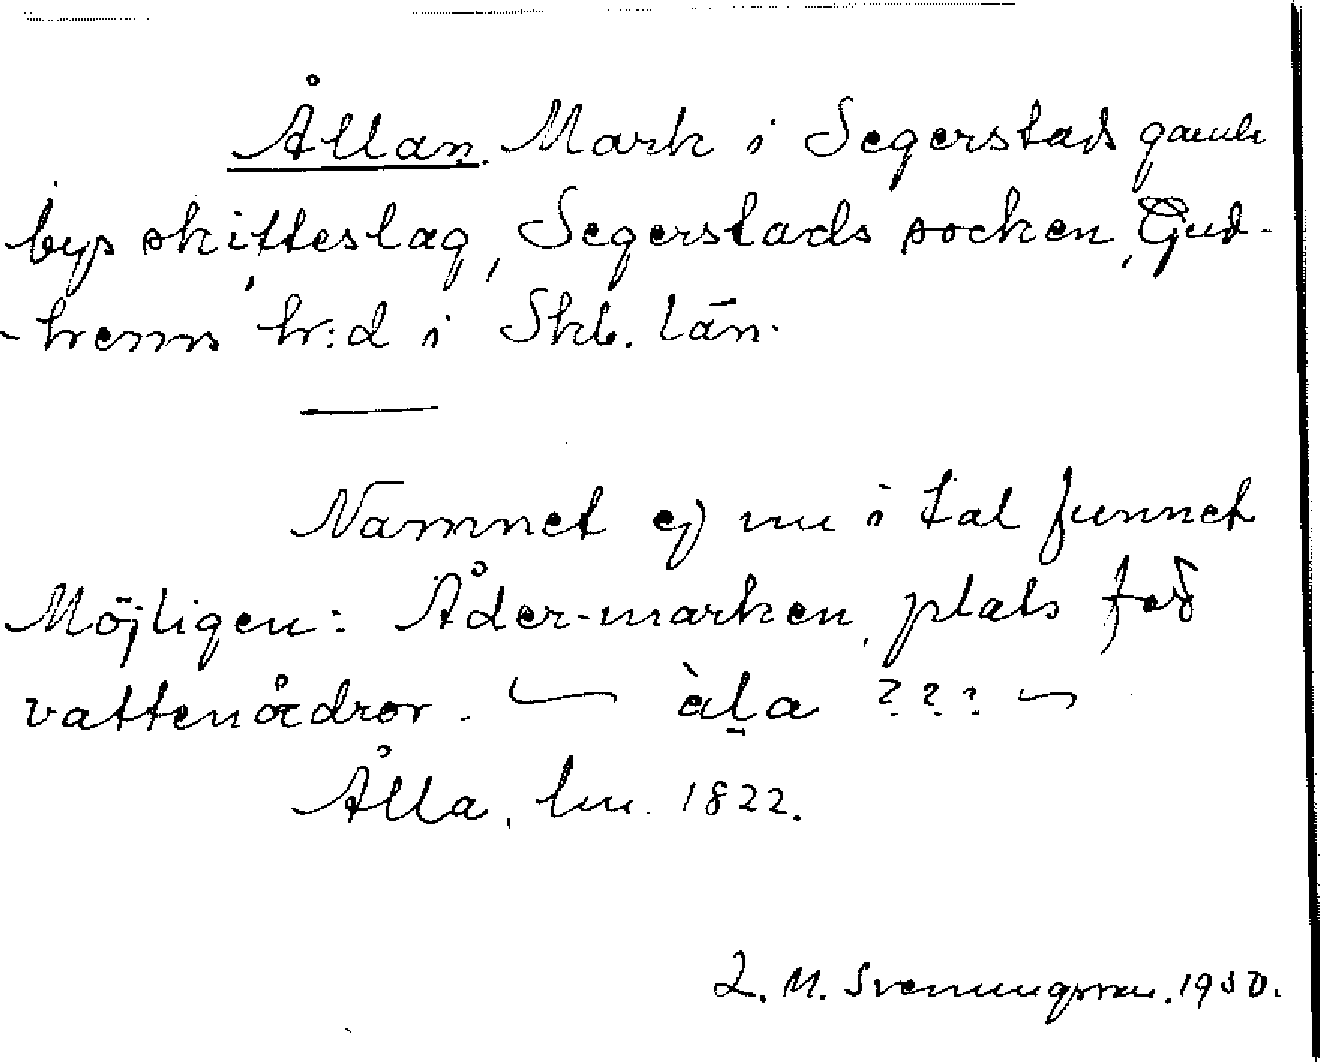 Ållan. Mark i Segerstads gamla
bys skifteslag, Segerstads socken, Gud-
-hems hr:d i Skb. län.
Namnet ej nu i tal funnet
Möjligen: Åder-marken, plats för
vattenådror. àla ???
Ålla, lm. 1822.
L. M. Svenungsson. 1930.